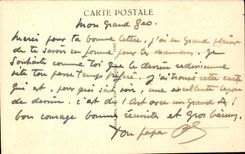 CARTE POSTALE
Mon grand Geo.
Merci pour ta bonne lettre. J'ai un grand plaisir
de te savoir en forme pour tes examens. Je
souhaite comme toi que le dessin redevienne
ton passe temps préféré. J'ai trouvé cette carte
qui est, pour qui sait voir, une excellente leçon
de dessin. C'est de l'Art avec un grand A;
bon courage bonne réussite et gros baisers
Ton papa